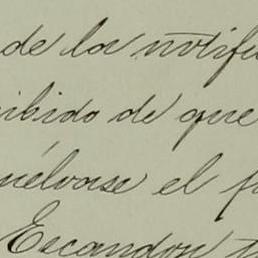 de los notifi
ibido de que
uélvase el f
Escandon t